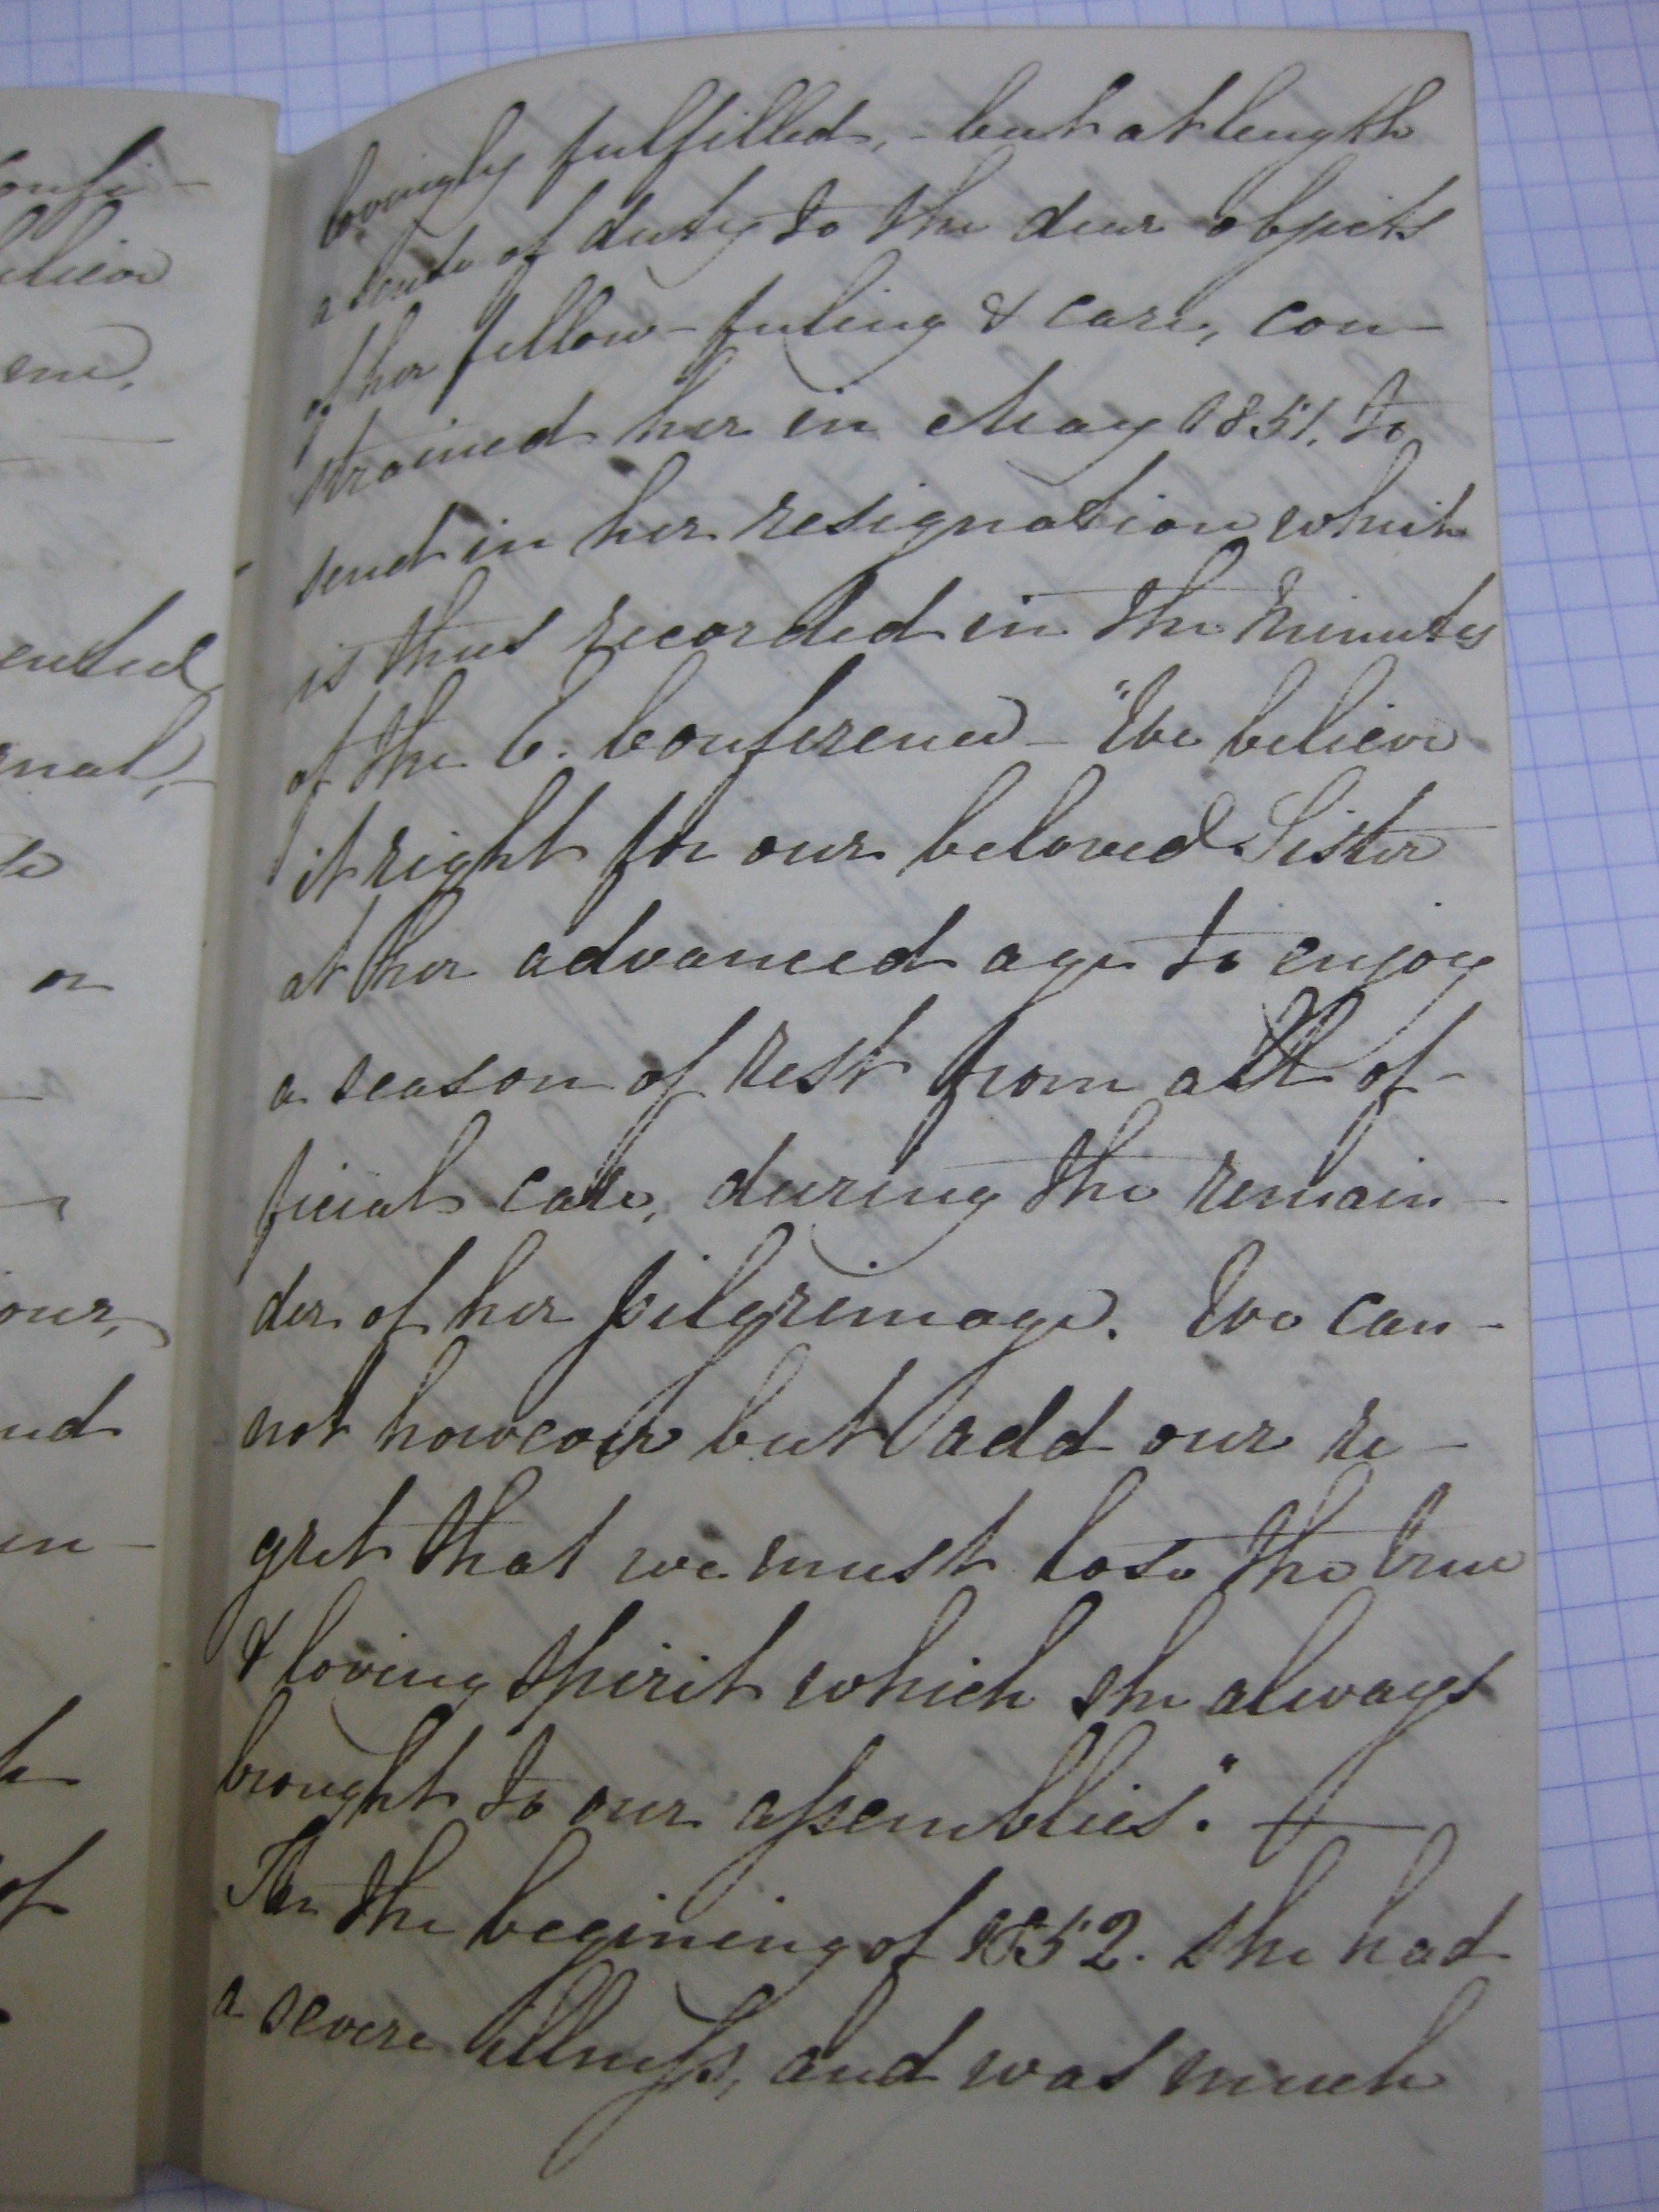 lovingly fulfilled, - but at length
a sense of duty to the dear objects
of her fellow-feeling & care, con-
strained her in May 1851. to
send in her resignation which
is thus recorded in the Minutes
of the E. Conference - "We believe
it right for our beloved Sister
at her advanced age to enjoy
a season of rest from all of-
ficial care, during the remain-
der of her pilgrimage. We can-
not however but add our re-
gret that we must lose the true
& loving spirit which she always
brought to our assemblies". —
In the begining of 1852. she had
a severe illness, and was much